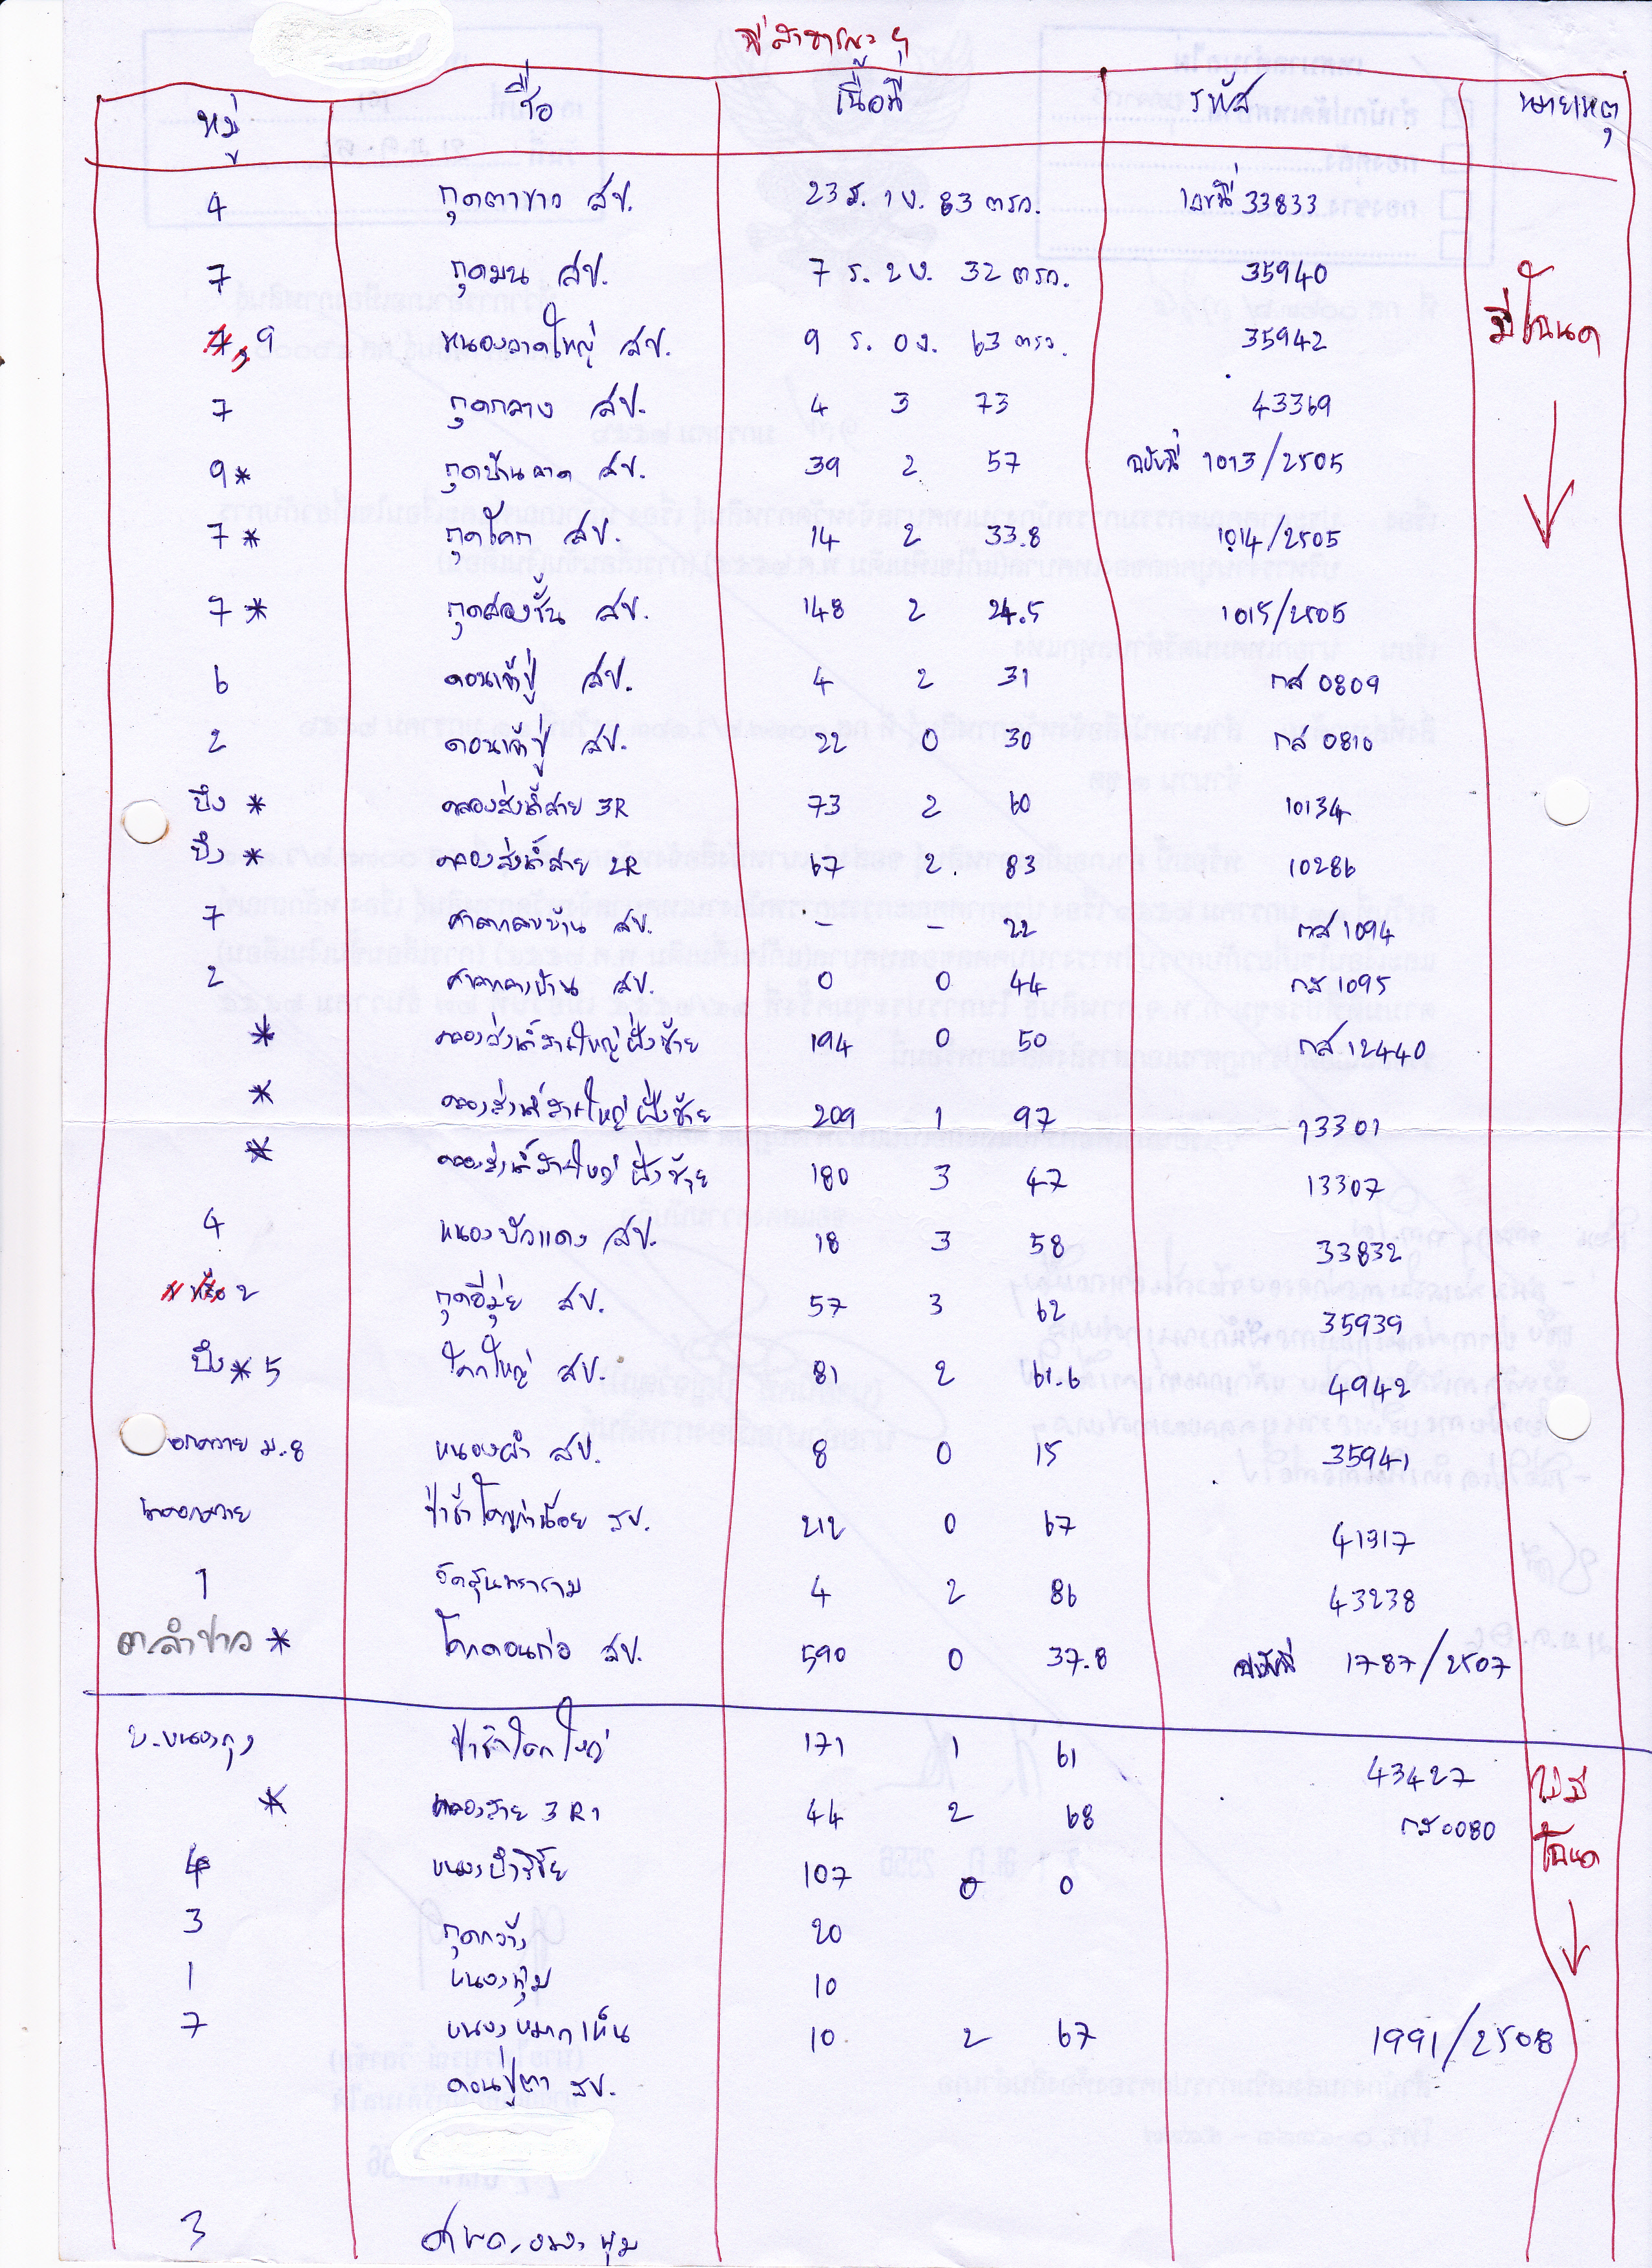 ที่สาธารณะฯ
หมู่ ชื่อ เนื้อที่ รหัส หมายเหตุ
4 กุดตาขาว สป. 23 ร. 1 ง. 83 ตรว. เลขที่ 33833
7 กุดมน สป. 7 ร. 2 ง. 32 ตรว. 35940
มีโฉนด
7, 9 หนองลาดใหญ่ สป. 9 ร. 0 ง. 63 ตรว. 35942
7 กุดกลาง สป. 4 3 73 43369
9 * กุดบ้านลาด สป. 39 2 57 ฉบับที่ 1013/2505
7 * กุดโคก สป. 14 2 33.8 1014/2505
7 * กุดสองชั้น สป. 148 2 24.5 1015/2505
6 ดอนเจ้าปู่ สป. 4 2 31 กส 0809
2 ดอนเจ้าปู่ สป. 22 0 30 กส 0810
บึง * คลองส่งน้ำสาย 3R 73 2 60 10134
บึง * คลองส่งน้ำสาย 2R 67 2 83 10286
7 ศาลกลางบ้าน สป. - - 22 กส 1094
2 ศาลกลางบ้าน สป. 0 0 44 กส 1095
* คลองส่งน้ำสายใหญ่ฝั่งซ้าย 194 0 50 กส 12440
* คลองส่งน้ำสายใหญ่ฝั่งซ้าย 209 1 97 13301
* คลองส่งน้ำสายใหญ่ฝั่งซ้าย 180 3 47 13307
4 หนองบัวแดง สป. 18 3 58 33832
2 กุดอีมุ่ย สป. 57 3 62 35939
บึง * 5 โคกใหญ่ สป. 81 2 61.6 4942
ม.8 หนองผำ สป. 8 0 15 35941
ป่าช้า สป. 212 0 67 41317
1 วัดสุนทราราม 4 2 86 43238
ต.ลำปาว * โคกดอนก่อ สป. 590 0 37.8 ฉบับที่ 1787/2507
บ.หนองกุง ป่าช้าโคกใหญ่ 171 1 61 43427
ไม่มี
* คลองสาย 3 R1 44 2 68 กส 0080
โฉนด
4 107 0 0
3 กุดกว้าง 20
1 หนองทุ่ม 10
7 หนองหมากเห็น 10 2 67 1991/2508
ดอนปู่ตา สป.
3